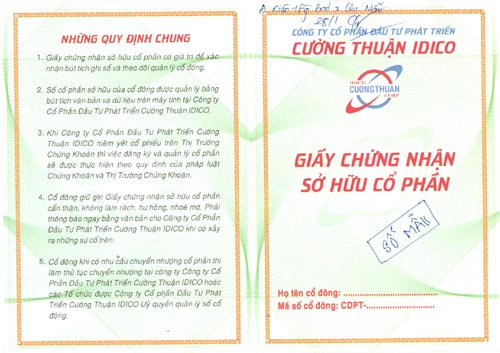 NHỮNG QUY ĐỊNH CHUNG
1. Giấy chứng nhận sở hữu cổ phần có giá trị để xác
nhận bút tích ghi số và theo dõi quản lý cổ đông.
2. Số cổ phần sở hữu của cổ đông được quản lý bằng
bút tích văn bản và dữ liệu trên máy tính tại Công ty
Cổ Phần Đầu Tư Phát Triển Cường Thuận IDICO.
3. Khi Công ty Cổ Phần Đầu Tư Phát Triển Cường
Thuận IDICO niêm yết cổ phiếu trên Thị Trường
Chứng Khoán thì việc đăng ký và quản lý cổ phần
sẽ được thực hiện theo quy định của pháp luật
Chứng Khoán và Thị Trường Chứng Khoán.
4. Cổ đông giữ gìn Giấy chứng nhận sở hữu cổ phần
cẩn thận, không làm rách, hư hỏng, nhoè mờ. Phải
thông báo ngay bằng văn bản cho Công ty Cổ Phần
Đầu Tư Phát Triển Cường Thuận IDICO khi có xảy
ra những sự cố trên.
5. Cổ đông khi có nhu cầu chuyển nhượng cổ phần thì
làm thủ tục chuyển nhượng tại công ty Công ty Cổ
Phần Đầu Tư Phát Triển Cường Thuận IDICO hoặc
các Tổ chức được Công ty Cổ Phần Đầu Tư Phát
Triển Cường Thuận IDICO Uỷ quyền quản lý số cổ
đông.
28/1
CÔNG TY CỔ PHẦN ĐẦU TƯ PHÁT TRIỂN
CƯỜNG THUẬN IDICO
IDICO
CUONGTHUAN
CORP
GIẤY CHỨNG NHẬN
SỞ HỮU CỔ PHẦN
SỐ MẪU
Họ tên cổ đông: ........................
Mã số cổ đông: CDPT-..................